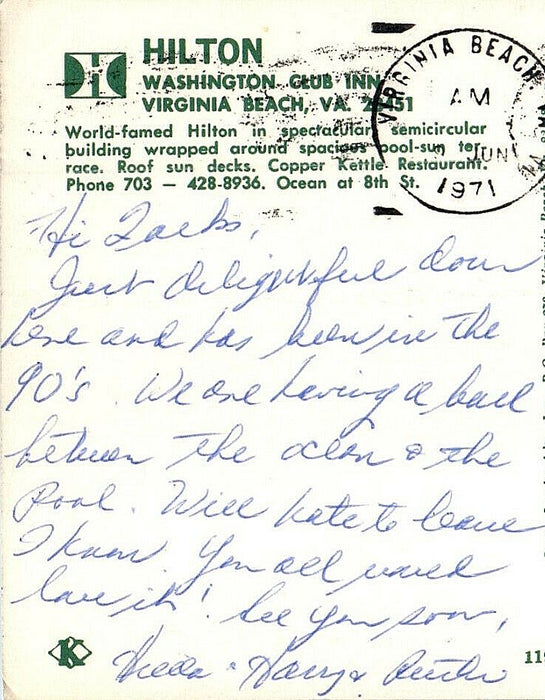 HILTON
WASHINGTON CLUB INN
VIRGINIA BEACH, VA. 23451
World-famed Hilton in spectacular semicircular
building wrapped around spacious pool-sun ter-
race. Roof sun decks. Copper Kettle Restaurant.
Phone 703 — 428-8936. Ocean at 8th St.
VIRGINIA BEACH, VA
AM
JUN
1971
Hi
Just delightful down
here and has been in the
90's. We are having a ball
between the ocean & the
Pool. Will hate to leave
I know. You all would
love it! See you soon,
Harry &
K
119